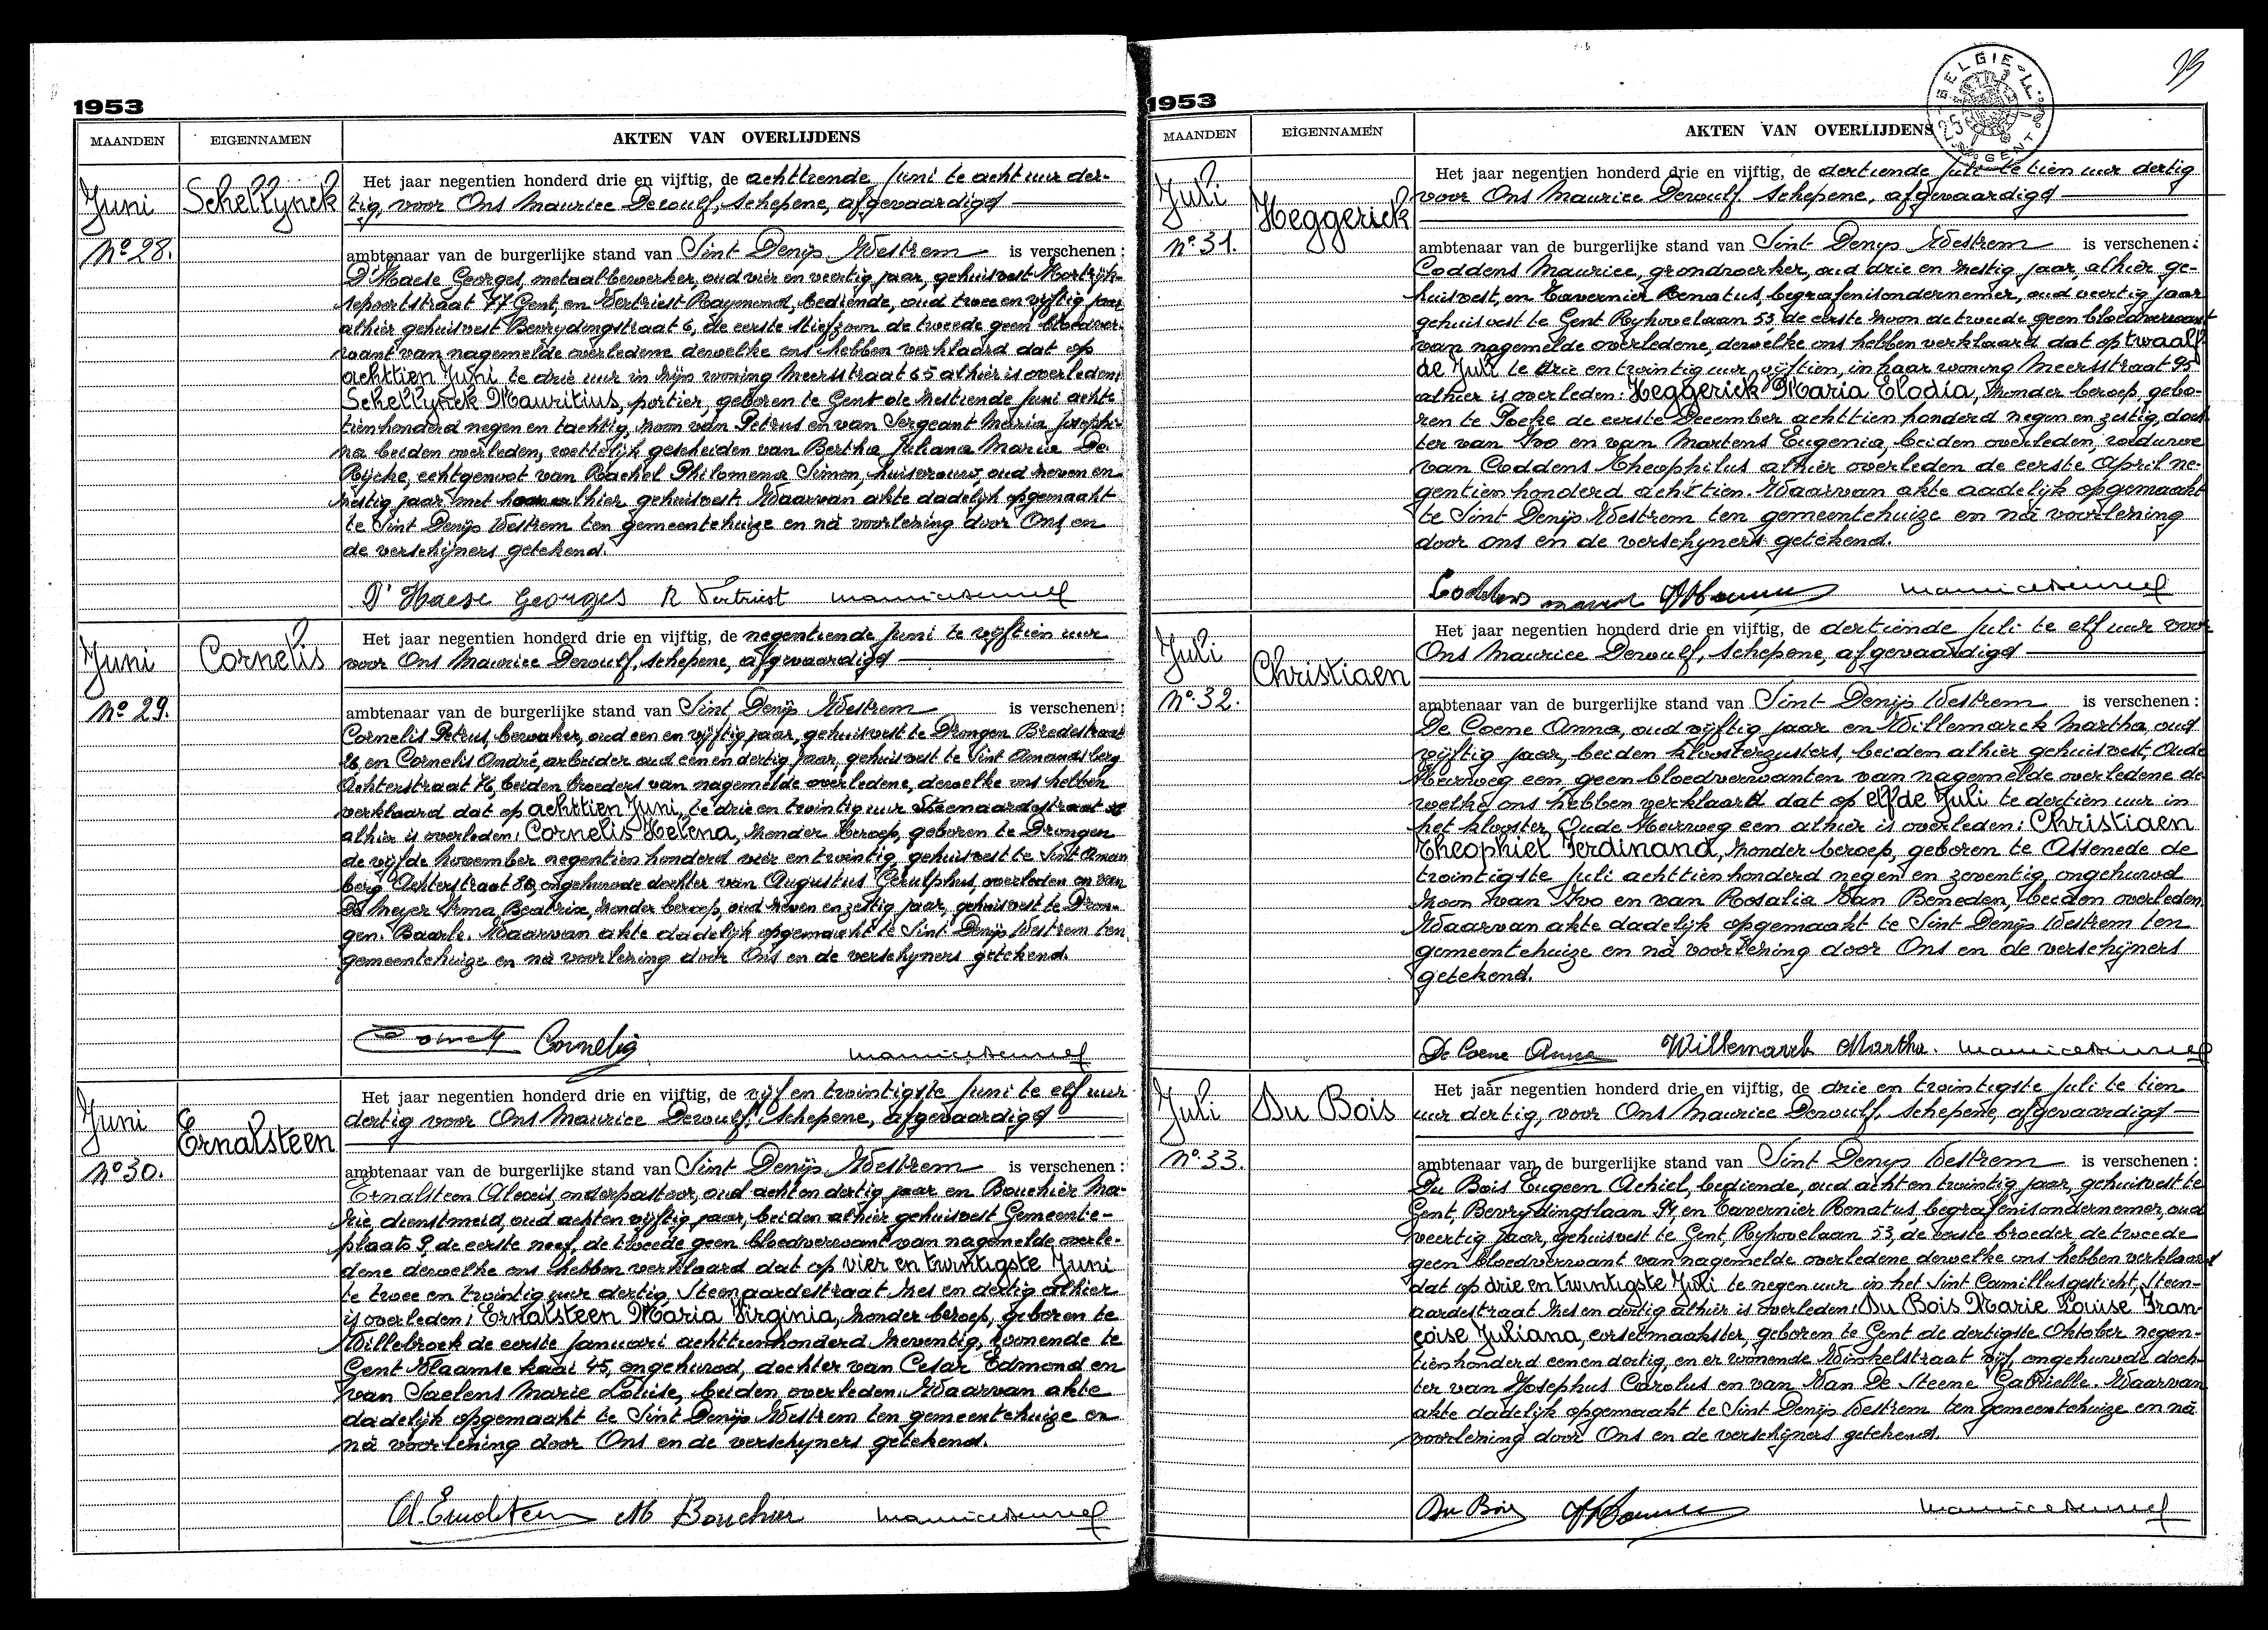 1953
MAANDEN EIGENNAMEN AKTEN VAN OVERLIJDENS
Juni
No 28.
Schellynck
Het jaar negentien honderd drie en vijftig, de achttiende Juni te acht uur der-
tig, voor Ons Maurice Dewulf, schepene, afgevaardigd
ambtenaar van de burgerlijke stand van Sint Denijs Westrem is verschenen:
D'Haese Georges, metaalbewerker, oud vier en veertig jaar, gehuisvest Kortrijk-
sepoortstraat 77 Gent, en Vertriest Raymond, bediende, oud twee en vijftig jaar
alhier gehuisvest Bevrydingstraat 6, de eerste stiefzoon de tweede geen bloedver-
want van nagemelde overledene dewelke ons hebben verklaard dat op
achttien Juni te drie uur in zijn woning Meersstraat 65 alhier is overleden:
Schellynck Mauritius, portier, geboren te Gent de zestiende Juni acht-
tienhonderd negen en tachtig, zoon van Petrus en van Sergeant Maria Josephi-
na beiden overleden, wettelijk gescheiden van Bertha Juliana Maria De
Rijcke, echtgenoot van Rachel Philomena Simon, huisvrouw, oud zeven en
zestig jaar met haar alhier gehuisvest. Waarvan akte dadelijk opgemaakt
te Sint Denijs Westrem ten gemeentehuize en na voorlezing door Ons en
de verschijners getekend.
D'Haese Georges R Vertriest
Juni
No 29.
Cornelis
Het jaar negentien honderd drie en vijftig, de negentiende Juni te vijftien uur
voor Ons Maurice Dewulf, schepene, afgevaardigd
ambtenaar van de burgerlijke stand van Sint Denijs Westrem is verschenen:
Cornelis Petrus, bewaker, oud een en vijftig jaar, gehuisvest te Drongen Bredestraat
26, en Cornelis André, arbeider oud een en dertig jaar, gehuisvest te Sint Amandsberg
Achterstraat 76, beiden broeders van nagemelde overledene, dewelke ons hebben
verklaard dat op achttien Juni, te drie en twintig uur Steenaardestraat
alhier is overleden: Cornelis Helena, zonder beroep, geboren te Drongen
de vijfde November negentien honderd vier en twintig, gehuisvest te Sint Aman
berg Achterstraat 80, ongehuwde dochter van Augustus Gerulphus, overleden en van
De Meyer Irma Beatrix, zonder beroep, oud zeven en zestig jaar, gehuisvest te Dron-
gen. Baarle. Waarvan akte dadelijk opgemaakt te Sint Denijs Westrem ten
gemeentehuize en na voorlezing door Ons en de verschijners getekend.
Cornelis
Juni
No 30.
Ernalsteen
Het jaar negentien honderd drie en vijftig, de vijf en twintigste Juni te elf uur
dertig voor Ons Maurice Dewulf, schepene, afgevaardigd
ambtenaar van de burgerlijke stand van Sint Denijs Westrem is verschenen:
Ernalsteen Alexis, onderpastoor, oud acht en dertig jaar en Bouchier Ma-
rie, dienstmeid, oud acht en vijftig jaar, beiden alhier gehuisvest Gemeente-
plaats 9, de eerste neef, de tweede geen bloedverwant van nagemelde overle-
dene dewelke ons hebben verklaard dat op vier en twintigste Juni
te twee en twintig uur dertig, Steenaardestraat zes en dertig alhier
is overleden: Ernalsteen Maria Virginia, zonder beroep, geboren te
Willebroek de eerste Januari achttienhonderd zeventig, wonende te
Gent Vlaamse kaai 45, ongehuwd, dochter van Cesar Edmond en
van Saelens Marie Louise, beiden overleden. Waarvan akte
dadelijk opgemaakt te Sint Denijs Westrem ten gemeentehuize en
na voorlezing door Ons en de verschijners getekend.
M Bouchier
1953
MAANDEN EIGENNAMEN AKTEN VAN OVERLIJDENS
BELGIE
GENT
Juli
No 31.
Heggerick
Het jaar negentien honderd drie en vijftig, de dertiende Juli te tien uur dertig
voor Ons Maurice Dewulf schepene, afgevaardigd
ambtenaar van de burgerlijke stand van Sint Denys Westrem is verschenen:
Coddens Maurice, grondwerker, oud drie en zestig jaar, alhier ge-
huisvest, en Tavernier Renatus, begrafenisondernemer, oud veertig jaar
gehuisvest te Gent Ryhovelaan 53, de eerste zoon de tweede geen bloedverwant
van nagemelde overledene, dewelke ons hebben verklaard dat op twaalf-
de Juli te drie en twintig uur vijftien, in haar woning Meersstraat 95
alhier is overleden: Heggerick Maria Elodia, zonder beroep, gebo-
ren te Poeke de eerste December achttien honderd negen en zestig, doch
ter van Ivo en van Martens Eugenia, beiden overleden, weduwe
van Coddens Theophilus alhier overleden de eerste April ne-
gentien honderd achttien. Waarvan akte dadelijk opgemaakt
te Sint Denijs Westrem ten gemeentehuize en na voorlezing
door ons en de verschyners getekend.
Juli
No 32.
Christiaen
Het jaar negentien honderd drie en vijftig, de dertiende Juli te elf uur voor
Ons Maurice Dewulf, schepene, afgevaardigd
ambtenaar van de burgerlijke stand van Sint Denijs Westrem is verschenen:
De Coene Anna, oud vijftig jaar en Willemarck Martha, oud
vijftig jaar, beiden kloosterzusters, beiden alhier gehuisvest, Oude
Heirweg een geen bloedverwanten van nagemelde overledene de
welke ons hebben verklaard dat op elfde Juli te dertien uur in
het klooster Oude Heirweg een alhier is overleden: Christiaen
Theophiel Ferdinand, zonder beroep, geboren te Assenede de
twintigste Juli achttienhonderd negen en zeventig, ongehuwd
zoon van Ivo en van Rosalia Van Beneden, beiden overleden
Waarvan akte dadelijk opgemaakt te Sint Denijs Westrem ten
gemeentehuize en na voorlezing door Ons en de verschijners
getekend.
De Coene Anna Willemarck Martha.
Juli
No 33.
Du Bois
Het jaar negentien honderd drie en vijftig, de drie en twintigste Juli te tien
uur dertig, voor Ons Maurice Dewulf, schepene, afgevaardigd
ambtenaar van de burgerlijke stand van Sint Denys Westrem is verschenen:
Du Bois Eugeen Achiel, bediende, oud acht en twintig jaar, gehuisvest te
Gent, Bevrydingslaan 94, en Tavernier Renatus, begrafenisondernemer, oud
veertig jaar, gehuisvest te Gent Ryhovelaan 53, de eerste broeder de tweede
geen bloedverwant van nagemelde overledene dewelke ons hebben verklaard
dat op drie en twintigste Juli te negen uur in het Sint Camillusgesticht, Steen-
aardestraat zes en dertig alhier is overleden: Du Bois Marie Louise Fran
çoise Juliana, corsetmaakster, geboren te Gent de dertigste Oktober negen-
tienhonderd een en dertig, en er wonende Winkelstraat vijf, ongehuwde doch-
ter van Josephus Carolus en van Van De Steene Gabrielle. Waarvan
akte dadelijk opgemaakt te Sint Denijs Westrem ten gemeentehuize en na
voorlezing door Ons en de verschijners getekend.
Du Bois